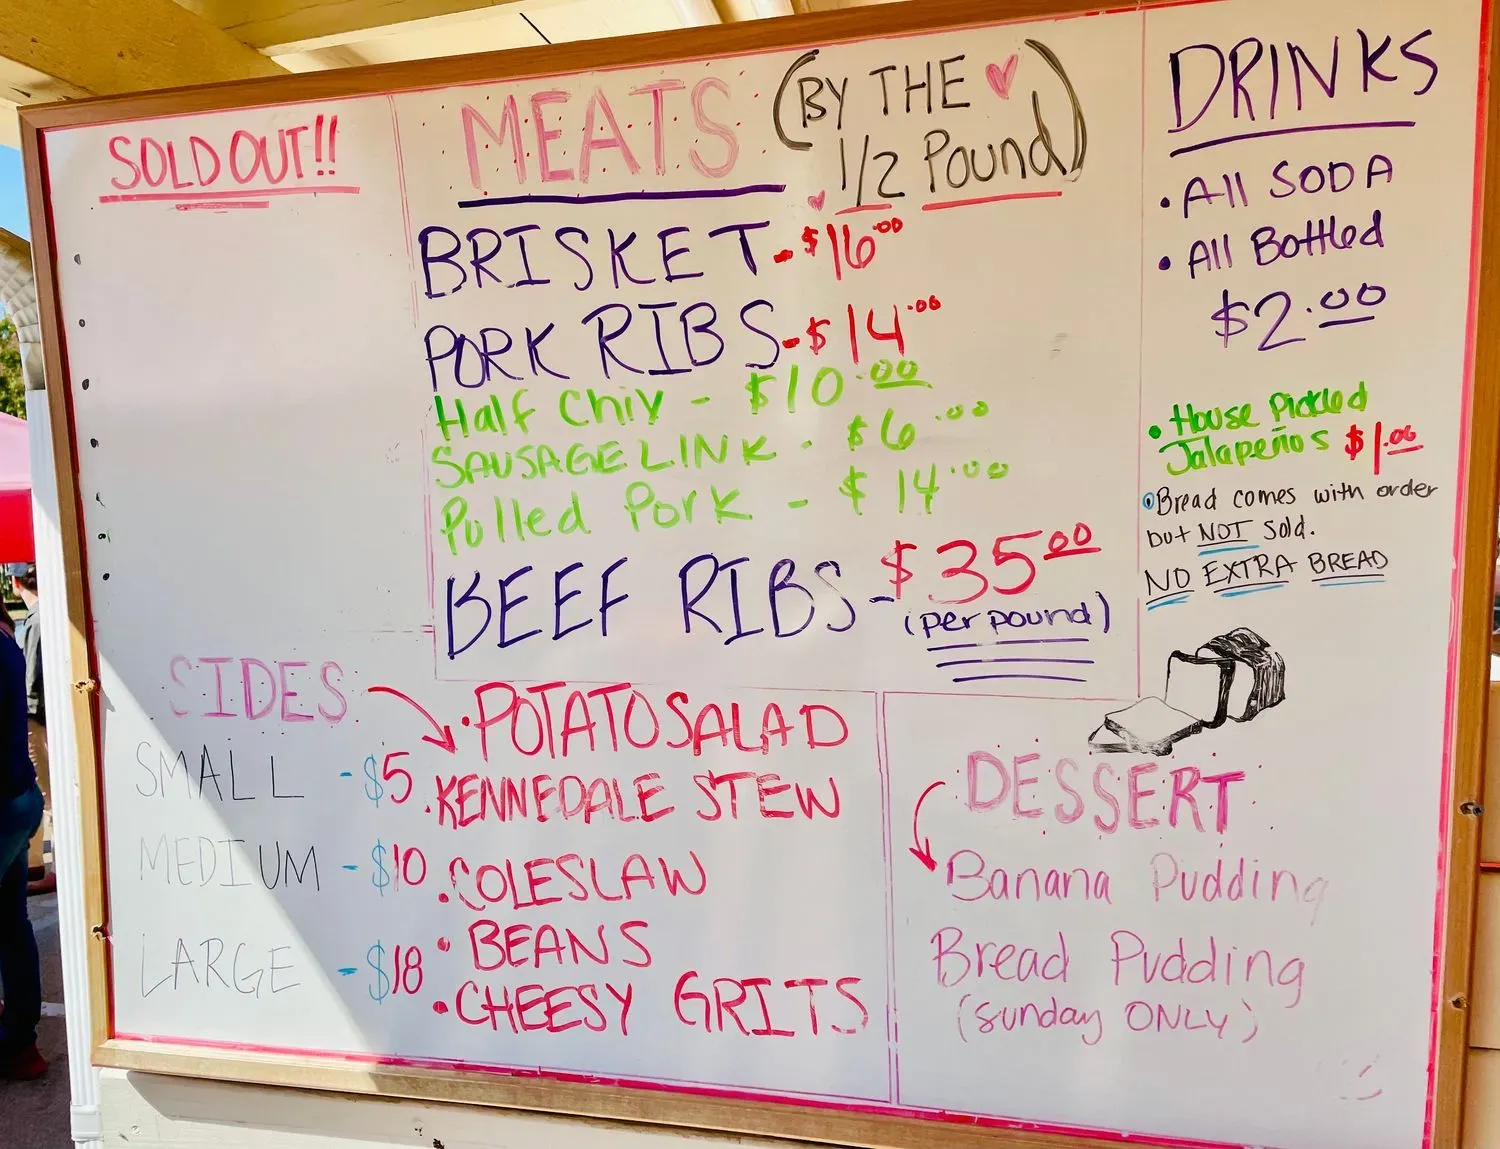 SOLD OUT!!
MEATS (BY THE 1/2 Pound)
BRISKET - $16.00
PORK RIBS - $14.00
Half Chiy - $10.00
SAUSAGE LINK - $6.00
Pulled Pork - $14.00
BEEF RIBS - $35.00
(per pound)
DRINKS
• All SODA
• All Bottled
$2.00
• House Pickled
Jalapeños $1.00
• Bread comes with order
but NOT sold.
NO EXTRA BREAD
SIDES
SMALL - $5
MEDIUM - $10
LARGE - $18
• POTATO SALAD
• KENNEDALE STEW
• COLESLAW
• BEANS
• CHEESY GRITS
DESSERT
Banana Pudding
Bread Pudding
(Sunday ONLY)